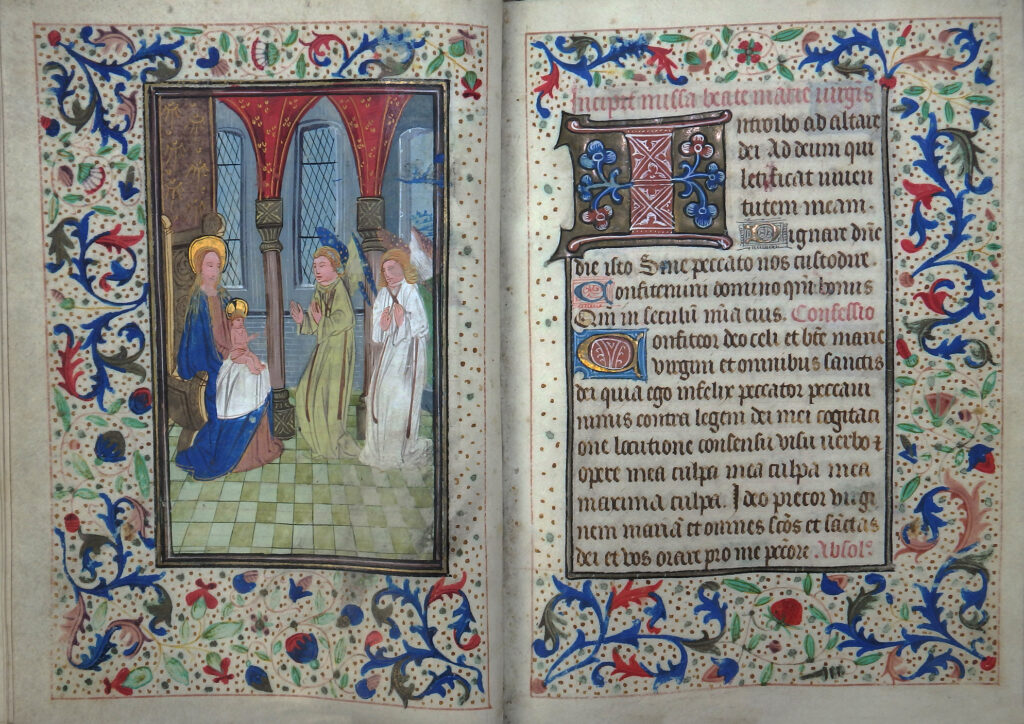 Incipit missa beate marie virgis
Introibo ad altare
dei Ad deum qui
letificat iuven
tutem meam.
Dignare dñe
die isto Sine peccato nos custodire.
Confitemini domino qm bonus
Qm in seculum mia eius. Confessio
Confiteor deo celi et bte marie
virgini et omnibus sanctis
dei quia ego infelix peccator peccavi
nimis contra legem dei mei cogitaci
one locutione consensu visu verbo ⁊
opere mea culpa mea culpa mea
maxima culpa. Ideo precor virgi
nem mariā et omnes scōs et sāctas
dei et vos orare pro me pctore Absol